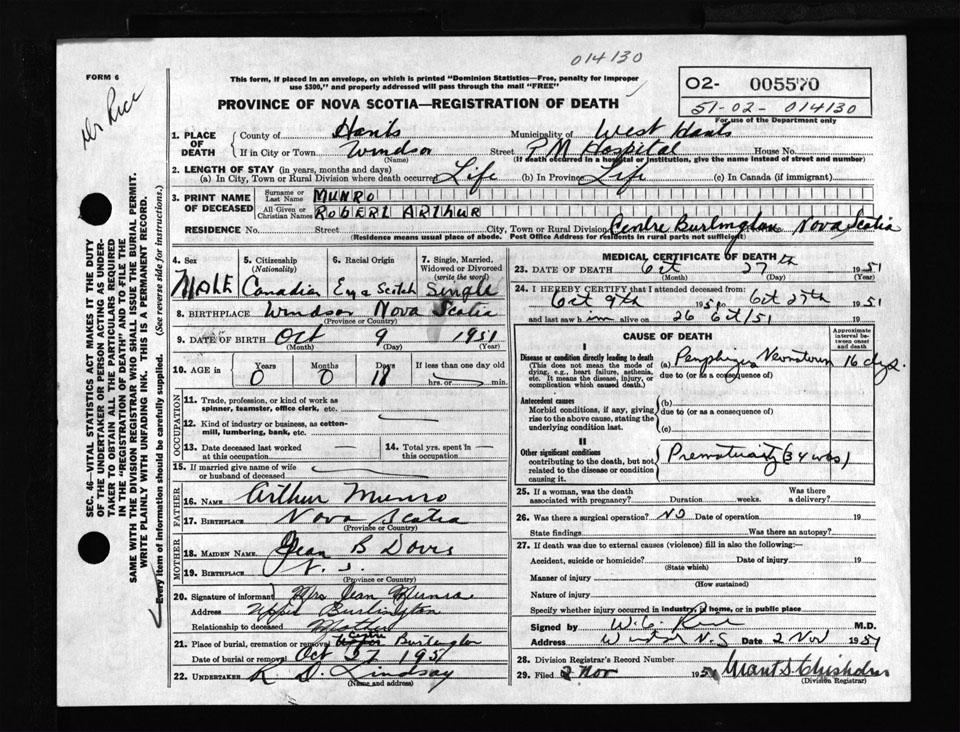 014130
FORM 6
Dr Rice
This form, if placed in an envelope, on which is printed "Dominion Statistics—Free, penalty for improper
use $300," and properly addressed will pass through the mail "FREE"
02- 005570
51-02-014130
For use of the Department only
PROVINCE OF NOVA SCOTIA—REGISTRATION OF DEATH
1. PLACE OF DEATH
County of Hants Municipality of West Hants
If in City or Town Windsor Street P M Hospital House No.
(Name) (If death occurred in a hospital or institution, give the name instead of street and number)
2. LENGTH OF STAY (in years, months and days)
(a) In City, Town or Rural Division where death occurred Life (b) In Province Life (c) In Canada (if immigrant)
3. PRINT NAME OF DECEASED
Surname or Last Name MUNRO
All Given or Christian Names ROBERT ARTHUR
RESIDENCE No. Street City, Town or Rural Division Centre Burlington Nova Scotia
(Residence means usual place of abode. Post Office Address for residents in rural parts not sufficient)
SEC. 46—VITAL STATISTICS ACT MAKES IT THE DUTY
OF THE UNDERTAKER OR PERSON ACTING AS UNDER-
TAKER TO OBTAIN ALL THE PARTICULARS REQUIRED
IN THE "REGISTRATION OF DEATH" AND TO FILE THE
SAME WITH THE DIVISION REGISTRAR WHO SHALL ISSUE THE BURIAL PERMIT.
WRITE PLAINLY WITH UNFADING INK. THIS IS A PERMANENT RECORD.
Every item of information should be carefully supplied. (See reverse side for instructions.)
4. Sex MALE
5. Citizenship (Nationality) Canadian
6. Racial Origin Eng & Scotch
7. Single, Married, Widowed or Divorced (write the word) Single
8. BIRTHPLACE Windsor Nova Scotia
(Province or Country)
9. DATE OF BIRTH Oct 9 1951
(Month) (Day) (Year)
10. AGE IN Years 0 Months 0 Days 18 If less than one day old
hrs. or min.
OCCUPATION
11. Trade, profession, or kind of work as
spinner, teamster, office clerk, etc.
12. Kind of industry or business, as cotton-
mill, lumbering, bank, etc.
13. Date deceased last worked
at this occupation
14. Total yrs. spent in
this occupation
15. If married give name of wife
or husband
FATHER
16. NAME Arthur Munro
17. BIRTHPLACE Nova Scotia
(Province or Country)
MOTHER
18. MAIDEN NAME Jean B
19. BIRTHPLACE N. S.
(Province or Country)
20. Signature of informant Mrs Jean Munro
Address Upper Burlington
Relationship to deceased Mother
21. Place of burial, cremation or removal Centre Burlington
Date of burial or removal Oct 27 1951
22. UNDERTAKER K D. Lindsay
(Name and address)
MEDICAL CERTIFICATE OF DEATH
23. DATE OF DEATH Oct 27th 1951
(Month) (Day)
24. I HEREBY CERTIFY that I attended deceased from:
Oct 9th 1951, Oct 27th 1951
and last saw him alive on 26 Oct/51 19
CAUSE OF DEATH
Approximate interval between onset and death
I
Disease or condition directly leading to death
(This does not mean the mode of
dying, e.g., heart failure, asthenia,
etc. It means the disease, injury, or
complication which caused death.)
(a) Pemphigus Neonatorum 16 dys.
due to (or as a consequence of)
Antecedent causes
Morbid conditions, if any, giving
rise to the above cause, stating the
underlying condition last.
(b)
due to (or as a consequence of)
(c)
II
Other significant conditions
contributing to the death, but not
related to the disease or condition
causing it.
Prematurity (34 wks)
25. If a woman, was the death
associated with pregnancy? Duration weeks. Was there
a delivery?
26. Was there a surgical operation? NO Date of operation 19
State findings Was there an autopsy?
27. If death was due to external causes (violence) fill in also the following:—
Accident, suicide or homicide? Date of injury 19
(State which)
Manner of injury
(How sustained)
Nature of injury
Specify whether injury occurred in industry, in home, or in public place
Signed by M.D.
Address Windsor N.S Date 2 Nov 1951
28. Division Registrar's Record Number
29. Filed 2 Nov 1951 Grant S. Chisholm
(Division Registrar)